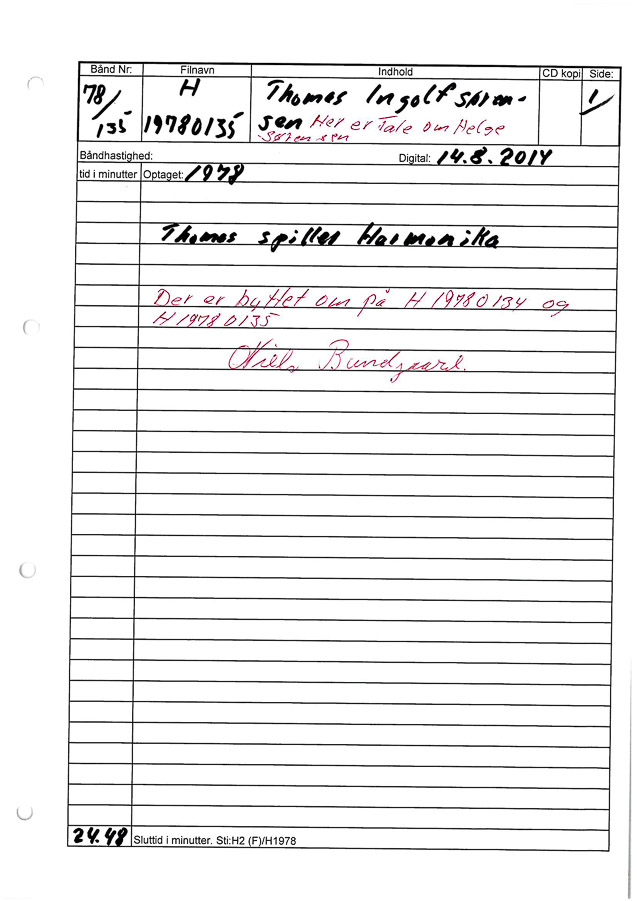 Bånd Nr: Filnavn Indhold CD kopi Side:
78/ H Thomas Ingolf Søren- 1/
135 19780135 sen Her er Tale om Helge
Sørensen
Båndhastighed: Digital: 14.8.2014
tid i minutter Optaget: 1978
Thomas spiller Harmonika
Der er byttet om på H 19780134 og
H 19780135
Niels Bundgaard.
24.48 Sluttid i minutter. Sti:H2 (F)/H1978